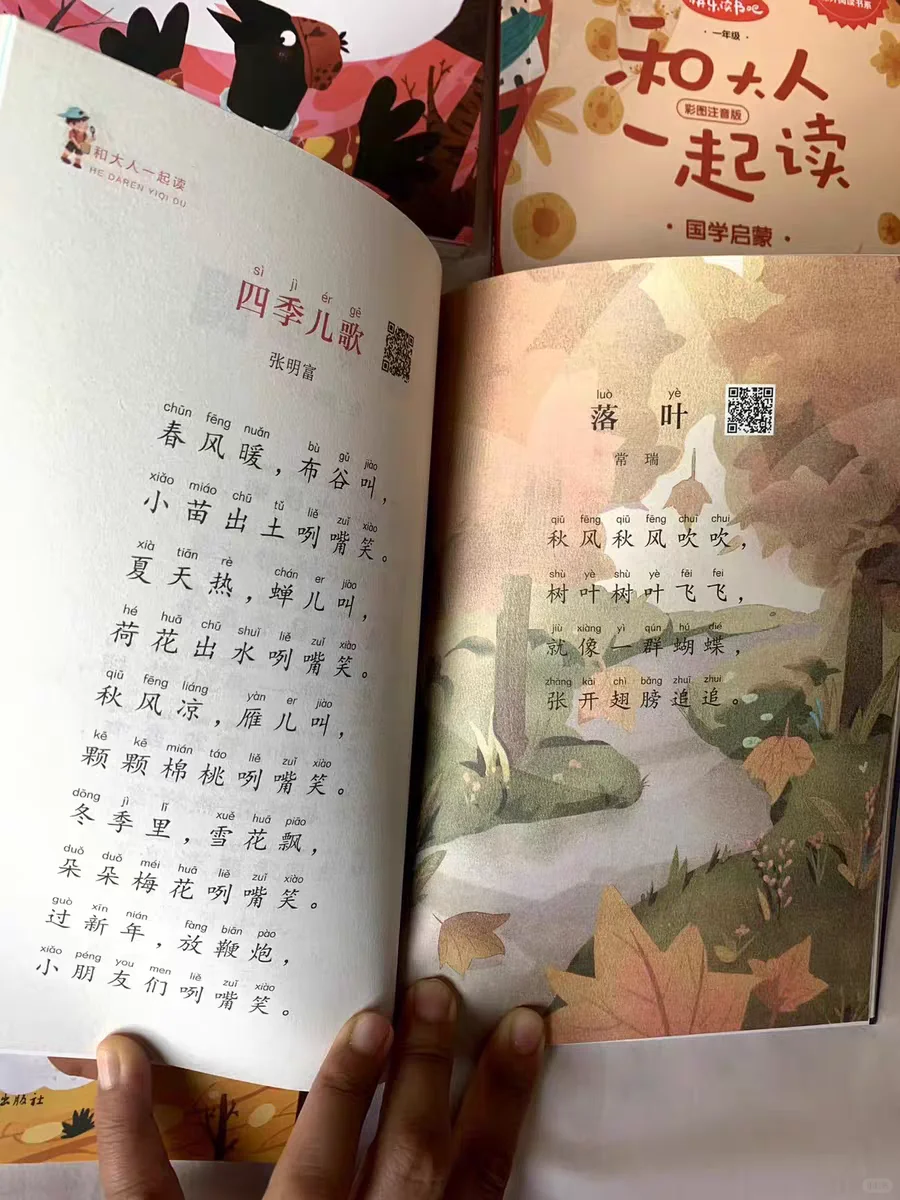 快乐读书吧
一年级
和大人
彩图注音版
一起读
·国学启蒙·
和大人一起读
HE DAREN YIQI DU
sì jì ér gē
四季儿歌
张明富
chūn fēng nuǎn bù gǔ jiào
春风暖，布谷叫，
xiǎo miáo chū tǔ liě zuǐ xiào
小苗出土咧嘴笑。
xià tiān rè chán er jiào
夏天热，蝉儿叫，
hé huā chū shuǐ liě zuǐ xiào
荷花出水咧嘴笑。
qiū fēng liáng yàn er jiào
秋风凉，雁儿叫，
kē kē mián táo liě zuǐ xiào
颗颗棉桃咧嘴笑。
dōng jì lǐ xuě huā piāo
冬季里，雪花飘，
duǒ duǒ méi huā liě zuǐ xiào
朵朵梅花咧嘴笑。
guò xīn nián fàng biān pào
过新年，放鞭炮，
xiǎo péng you men liě zuǐ xiào
小朋友们咧嘴笑。
luò yè
落叶
常瑞
qiū fēng qiū fēng chuī chui
秋风秋风吹吹，
shù yè shù yè fēi fei
树叶树叶飞飞，
jiù xiàng yì qún hú dié
就像一群蝴蝶，
zhāng kāi chì bǎng zhuī zhui
张开翅膀追追。
出版社